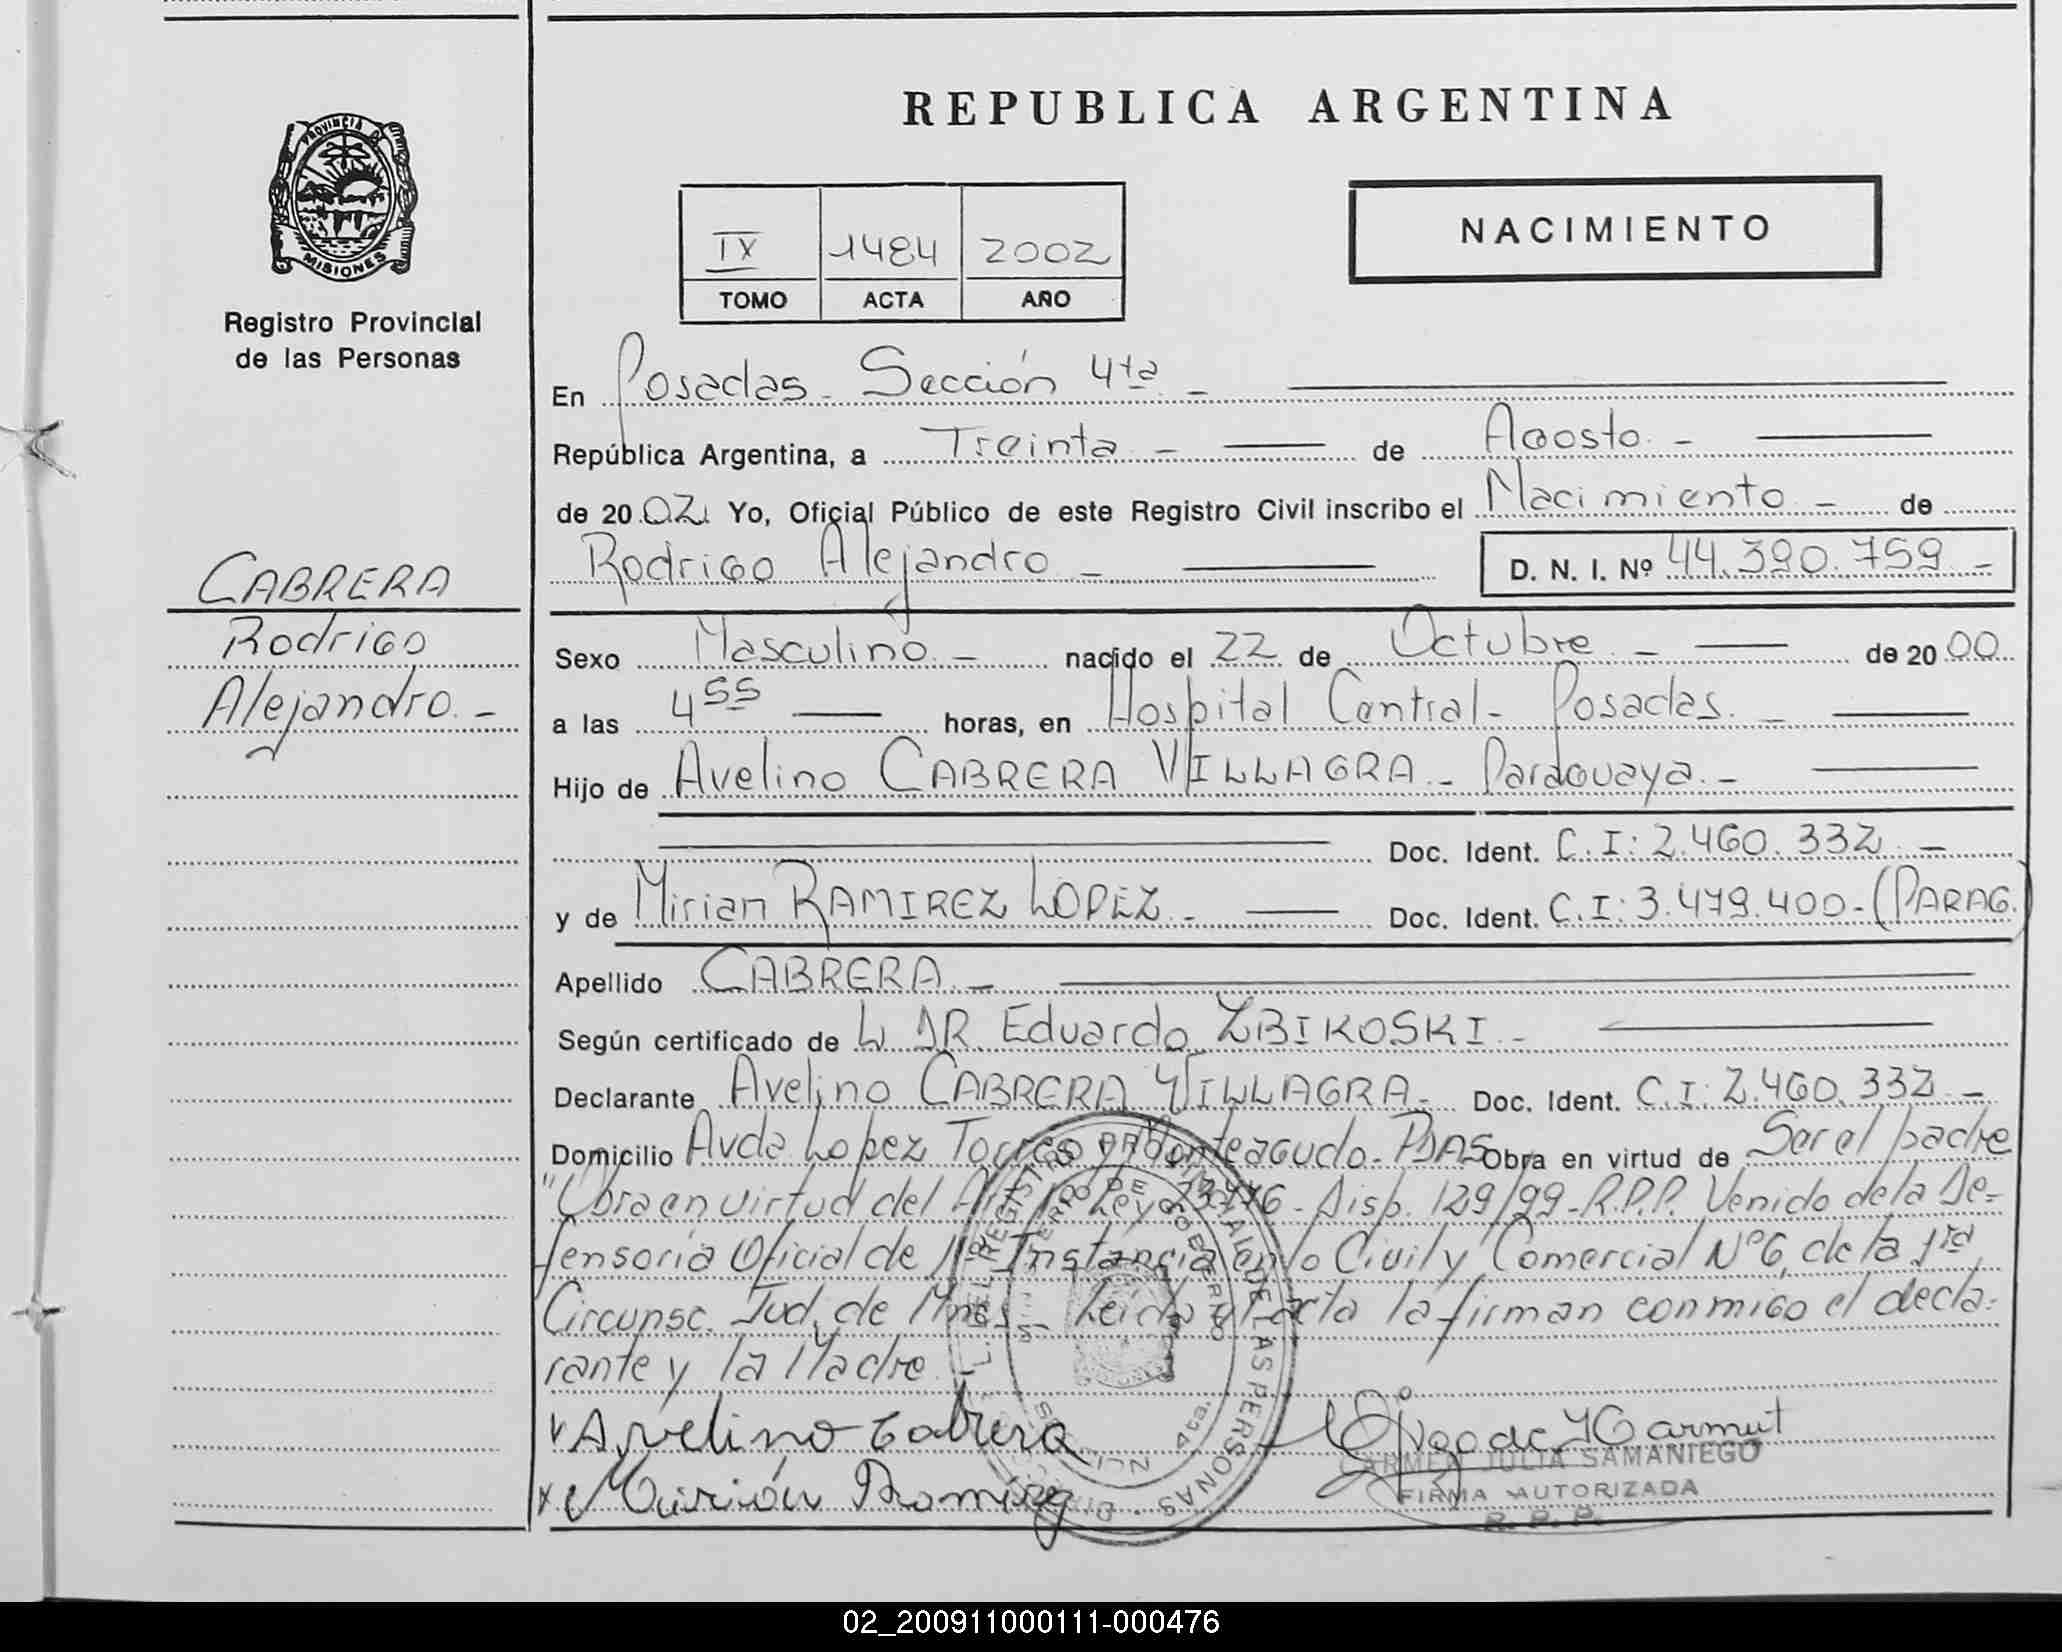 REPUBLICA ARGENTINA
PROVINCIA DE
MISIONES
Registro Provincial
de las Personas
IX 1484 2002
TOMO ACTA AÑO
NACIMIENTO
CABRERA
Rodrigo
Alejandro.-
En Posadas - Sección 4ta -
República Argentina, a Treinta - de Agosto -
de 2002. Yo, Oficial Público de este Registro Civil inscribo el Nacimiento - de
Rodrigo Alejandro - D. N. I. Nº 44.390.759 -
Sexo Masculino - nacido el 22 de Octubre - de 2000
a las 4 55 horas, en Hospital Central - Posadas. -
Hijo de Avelino CABRERA VILLAGRA - Paraguaya. -
Doc. Ident. C.I: 2.460.332 -
y de Mirian RAMIREZ LOPEZ - Doc. Ident. C.I: 3.479.400 - (PARAG.)
Apellido CABRERA. -
Según certificado de DR Eduardo ZBIKOSKI. -
Declarante Avelino CABRERA VILLAGRA - Doc. Ident. C.I: 2.460.332 -
Domicilio Avda Lopez Torres y Monteagudo - PDAS Obra en virtud de Ser el padre
"Obra en virtud del Art. Ley 23776 - Disp. 129/99 - R.P.P. Venido de la De=
fensoria Oficial de Instancia en lo Civil y Comercial Nº6, de la 1ra
Circunsc. Jud. de Mnes - Leida el acta la firman conmigo el decla-
rante y la Madre. -
Avelino Cabrera
CARMEN JULIA SAMANIEGO
FIRMA AUTORIZADA
R. P. P.
REGISTRO PROVINCIAL DE LAS PERSONAS
SECCION 4ta.
02_200911000111-000476